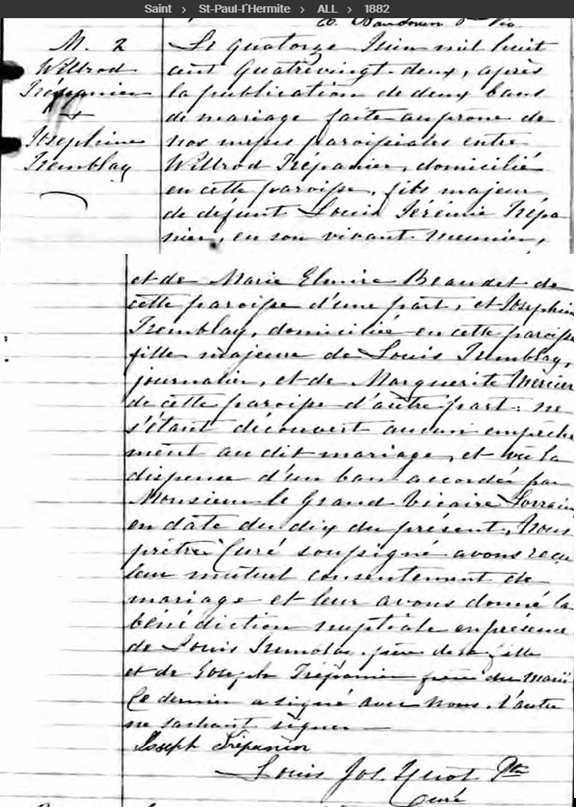 Saint > St-Paul-l'Hermite > ALL > 1882
M. 2
Willrod
Trépanier
+
Josephine
Tremblay
Le quatorze Juin mil huit
cent quatrevingt-deux, après
la publication de deux bans
de mariage faite au prone de
nos messes paroissiales entre
Willrod Trépanier, domicilié
en cette paroisse, fils majeur
de défunt Louis Jérémie Trépa
nier, en son vivant meunier,
et de Marie Elmire Beaudet de
cette paroisse d'une part, et Josephine
Tremblay, domiciliée en cette paroisse
fille majeure de Louis Tremblay,
journalier, et de Marguerite Mercier
de cette paroisse d'autre part: ne
s'étant découvert aucun empêche
ment au dit mariage, et vu la
dispense d'un ban accordée par
Monsieur le Grand Vicaire Lorrain
en date du dix du présent, Nous
prêtre Curé soussigné avons reçu
leur mutuel consentement de
mariage et leur avons donné la
bénédiction nuptiale en présence
de Louis Tremblay, père de la fille
et de Joseph Trépanier frère du marié
Ce dernier a signé avec nous. l'autre
ne sachant signer
Joseph Trépanier
Louis Jos. Ptre
Curé